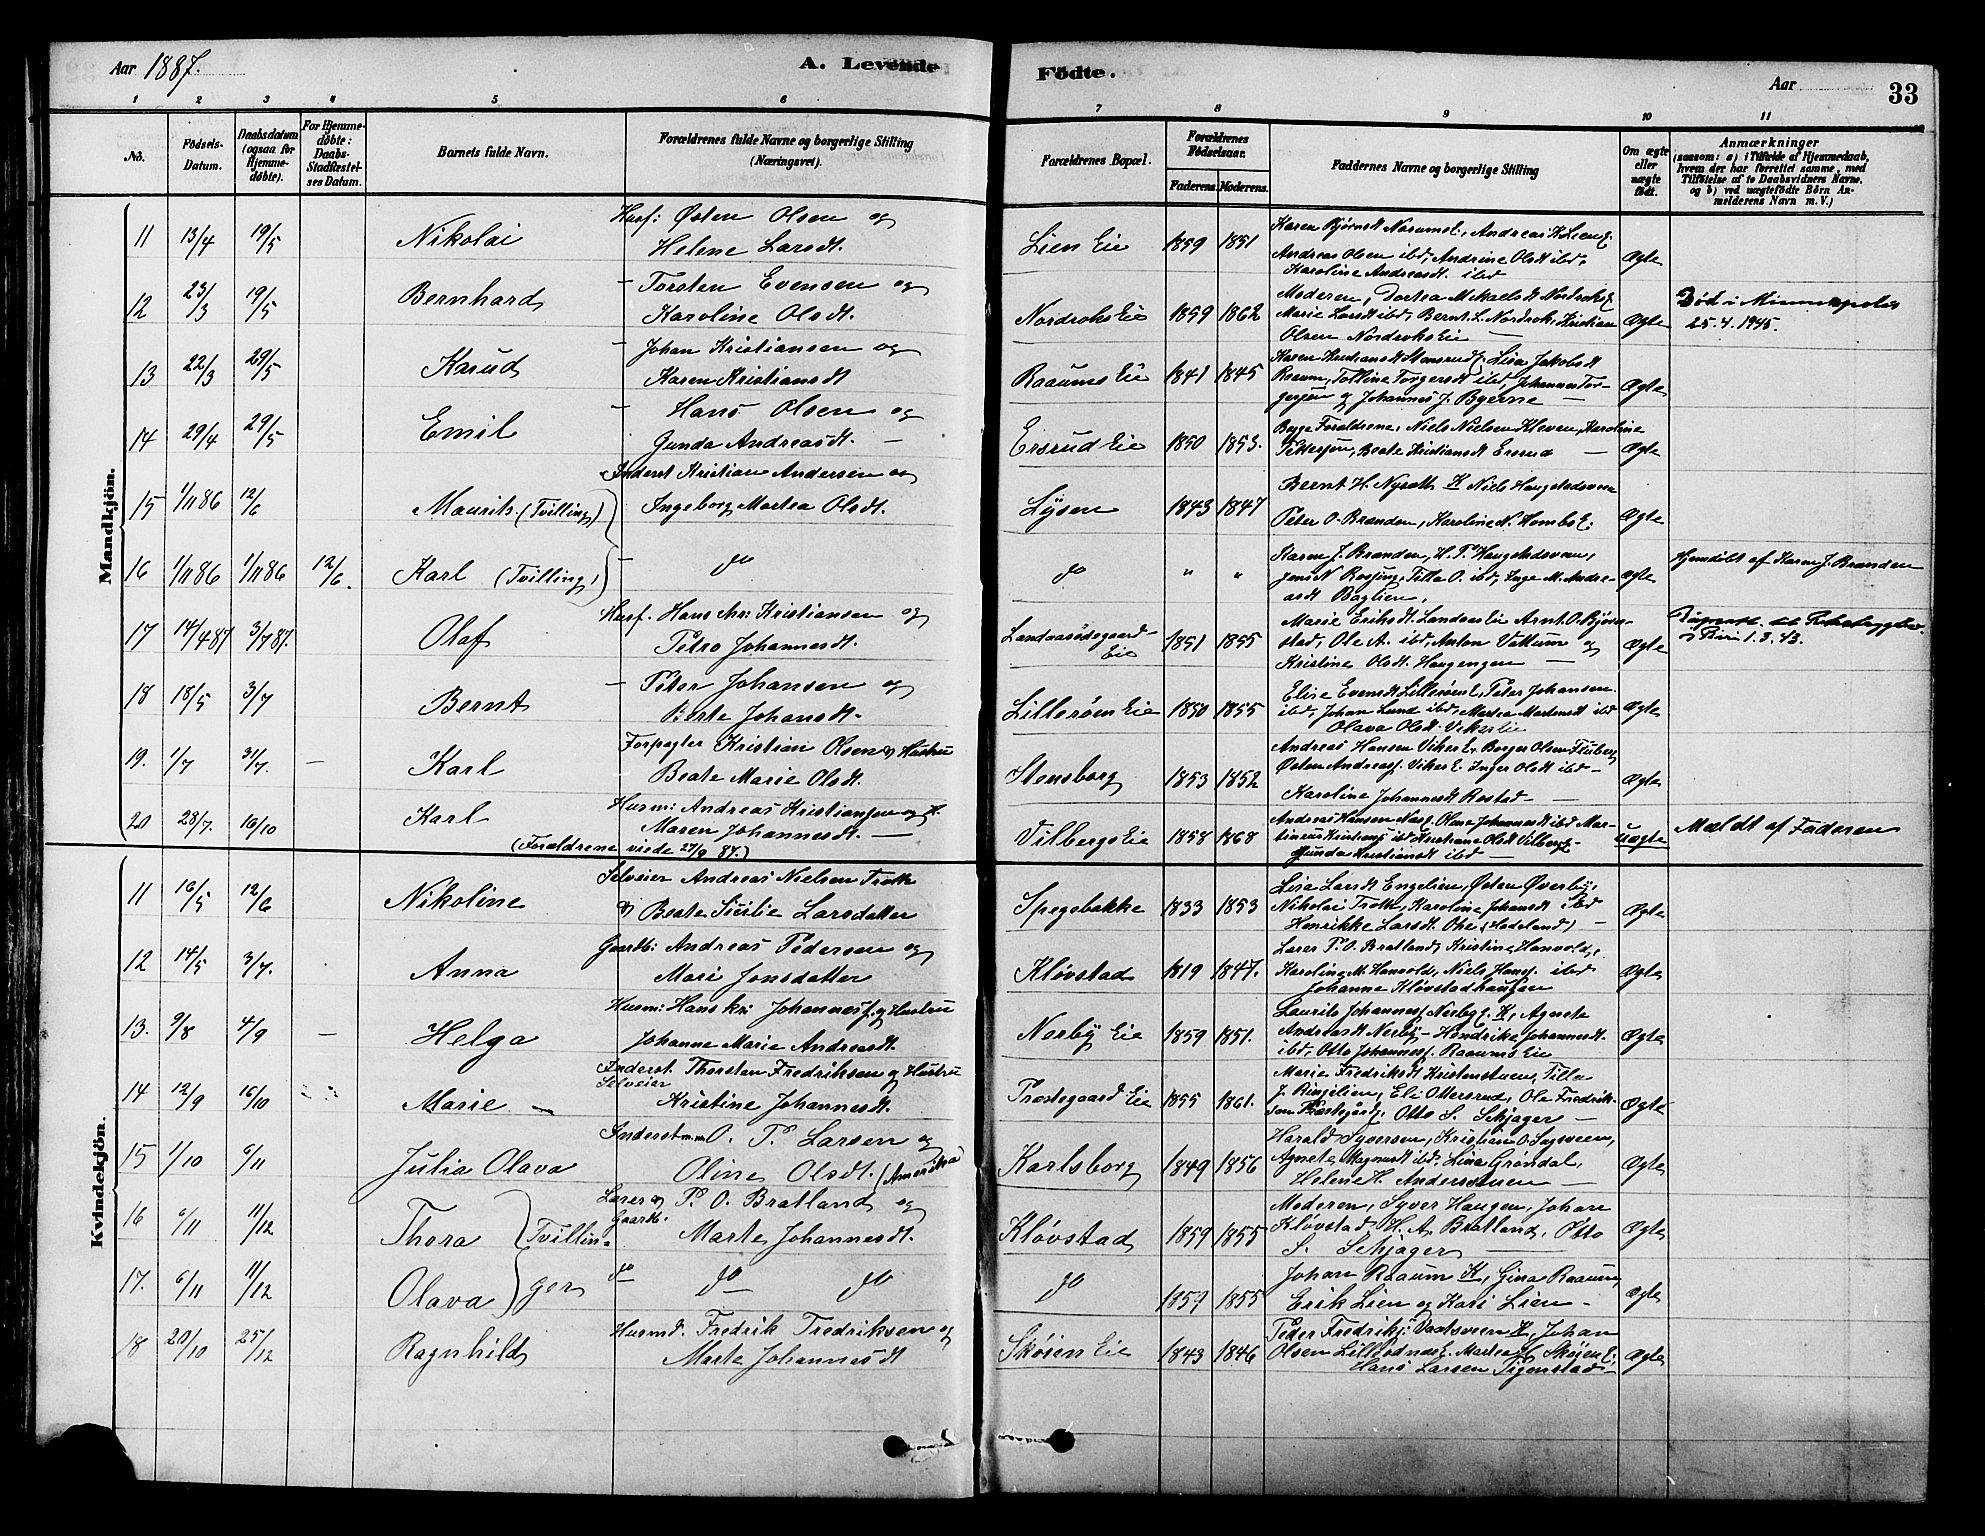 Aar 1887.
A. Levende Födte.
Aar
33
1 2 3 4 5 6 7 8 9 10 11
No.
Födsels-Datum.
Daabsdatum (ogsaa for Hjemme-döbte).
For Hjemme-döbte: Daabs-Stadfæstel-ses Datum.
Barnets fulde Navn.
Forældrenes fulde Navne og borgerlige Stilling (Næringsvei).
Forældrenes Bopæl.
Forældrenes Födselsaar.
Faderens. Moderens.
Faddernes Navne og borgerlige Stilling
Om ægte eller uægte födt.
Anmærkninger
(saasom: a) i Tilfælde af Hjemmedaab,
hvem der har forrettet samme, med
Tilföielse af to Daabsvidners Navne.
og b) ved uægtefödte Börn An-
melderens Navn m. V.)
Mandkjön.
11 13/4 19/5 Nikolai Husf: Østen Olsen og
Helene Larsdt. Lien Eie 1859 1851 Karen Bjørnsdt Andreas Lien
Andreas Olsen ibd, Andrine Olsdt ibd,
Karoline Andreasdt. ibd Ægte
12 23/3 19/5 Bernhard – Torsten Evensen og
Karoline Olsdt. Nordroks Eie 1859 1862 Moderen, Dortea Mikaelsdt
Marie Larsdt ibd, Bernt L. Nordrok, Kristian
Olsen Nordroks Eie Ægte Död i Minneapolis
25.4.1945.
13 22/3 29/5 Karud – Johan Kristiansen og
Karen Kristiansdt Raaums Eie 1841 1845 Karen Kristiansdt Lisa Jakobsdt
Raaum, Torgersdt ibd, Johannes Tor-
gersen og Johannes J. Byerne – Ægte
14 29/4 29/5 Emil – Hans Olsen og
Gunda Andreasdt. – Ersrud Eie 1850 1853. Begge Forældrene, Niels Nielsen Kleven, Karoline
Pettersen, Beate Kristiansdt Ersrud – Ægte
15 1/11 86 12/6 Maurits (Tvilling) Inderst Kristian Andersen og
Ingeborg Martea Olsdt. Lÿsen 1843 1847 Bernt H. K Niels Haugstadsveen
Peter O. Brænden, Karoline N. Ægte
16 1/11 86 1/11 86 12/6. Karl (Tvilling) – do do " " Karen J. Brænden, H. P. Haugstadsveen,
Jens N Rosjing, O. ibd, Inge M. Andre-
asdt Baglien, ægte Hjemdöbt af Karen J. Brænden
17 14/4 87 3/7 87. Olaf Husf. Hans Kristiansen og
Petro Johannesdt. Landaasödegaard-
Eie 1851 1855 Marie Eriksdt. Landaas Eie Arnt. O.
stad, Ole A. ibd, Anton Vattum og
Kristine Olsdt. Haugengen – Ægte
Biri 1.3.43.
18 18/5 3/7 Bernt – Peter Johansen og
Berte Johansdt. Lilleröen Eie 1850 1855 Elise Evensdt Lilleröen E, Peter Johansen
ibd, Johan Lund ibd, Martea Martinsdt ibd
Olava Olsdt. Vikerlie Ægte
19. 1/7 31/7. – Karl Forpagter Kristian Olsen og Hustru
Beate Marie Olsdt. Stensborg 1853 1852 Andreas Hansen Viker E. Borger Olsen Fluberg
Østen Andreass. Viker E. Inger Olsdt ibd –
Karoline Johannesdt Rostad – Ægte
20 28/7. 16/10 Karl Husm: Andreas Kristiansen og H.
Maren Johannesdt. –
(Forældrene viede 27/9 87.) Vilbergs Eie 1858 1868 Andreas Hansen Oline Johannesdt ibd Mar-
tineus ibd Kristiane Olsdt Vilbergs-
Gunda Kristiansdt ibd – uægte Mældt af Faderen
Kvindekjön.
11 16/5 12/6 Nikoline Selveier Andreas Nielsen
og Beate Sicilie Larsdatter Spegsbakke 1833 1853 Lisa Larsdt Engelien, Østen Øverby,
Nikolai Karoline Johansdt ibd
Henrikke Larsdt. (Hadeland) – Ægte
12 14/5 3/7. Anna Gaardb: Andreas Pedersen og
Mari Jonsdatter Klövstad 1819 1847. Lærer P. O. Bratland, Kristine Hanvold,
Karoline M. Hanvold, Niels Hans. ibd
Johanne Klövstadhaugen Ægte
13. 9/8 4/9 – Helga Husm: Hans Kr: Johanness. og Hustru
Johanne Marie Andreasdt. Nerby Eie 1859 1851. Laurits Johanness. Nerby E. K, Agnete
Andreasdt Nerby – Hendrika Johannesdt.
ibd, Otto Johanness. Raaums Eie Ægte
14 12/9 16/10 Marie – Inderst. Thorsten Fredriksen og Hustru
Selveier
Kristine Johannesdt. Præstegaard Eie 1855 1861. Marie Fredriksdt Kristenstuen, Tilla
J. Ringelien, Eli Ottersrud, Ole Fredrik-
sen Otto S. Schjager – Ægte
15 1/10 6/11 Julia Olava Inderst O. P. Larsen og
Oline Olsdt. (Amerika) Karlsborg 1849 1856 Harald Syversen, Kristian O. Sagsveen,
Agnete Magnusdt ibd, Lina Gröndal,
Helene H. Andersstuen – Ægte
16 6/11 11/12 Thora (Tvillin- Lærer og
Gaardb. P. O. Bratland og
Marte Johannesdt. Klövstad 1859 1855 Moderen, Syver Haugen, Johan
Klövstad, H. A. Bratland, Otto
S. Schjager – Ægte
17. 6/11 11/12 Olava ger do do do do 1857 1855 Johan Raaum K, Gina Raaum,
Erik Lien og Kari Lien – Ægte
18 20/10 25/12 Ragnhild Husmd. Fredrik Fredriksen og
Marte Johannesdt Sköien Eie 1843 1846 Peder Fredriks: K, Johan
Olsen Martea H. Sköien E.
Hans Larsen Ægte